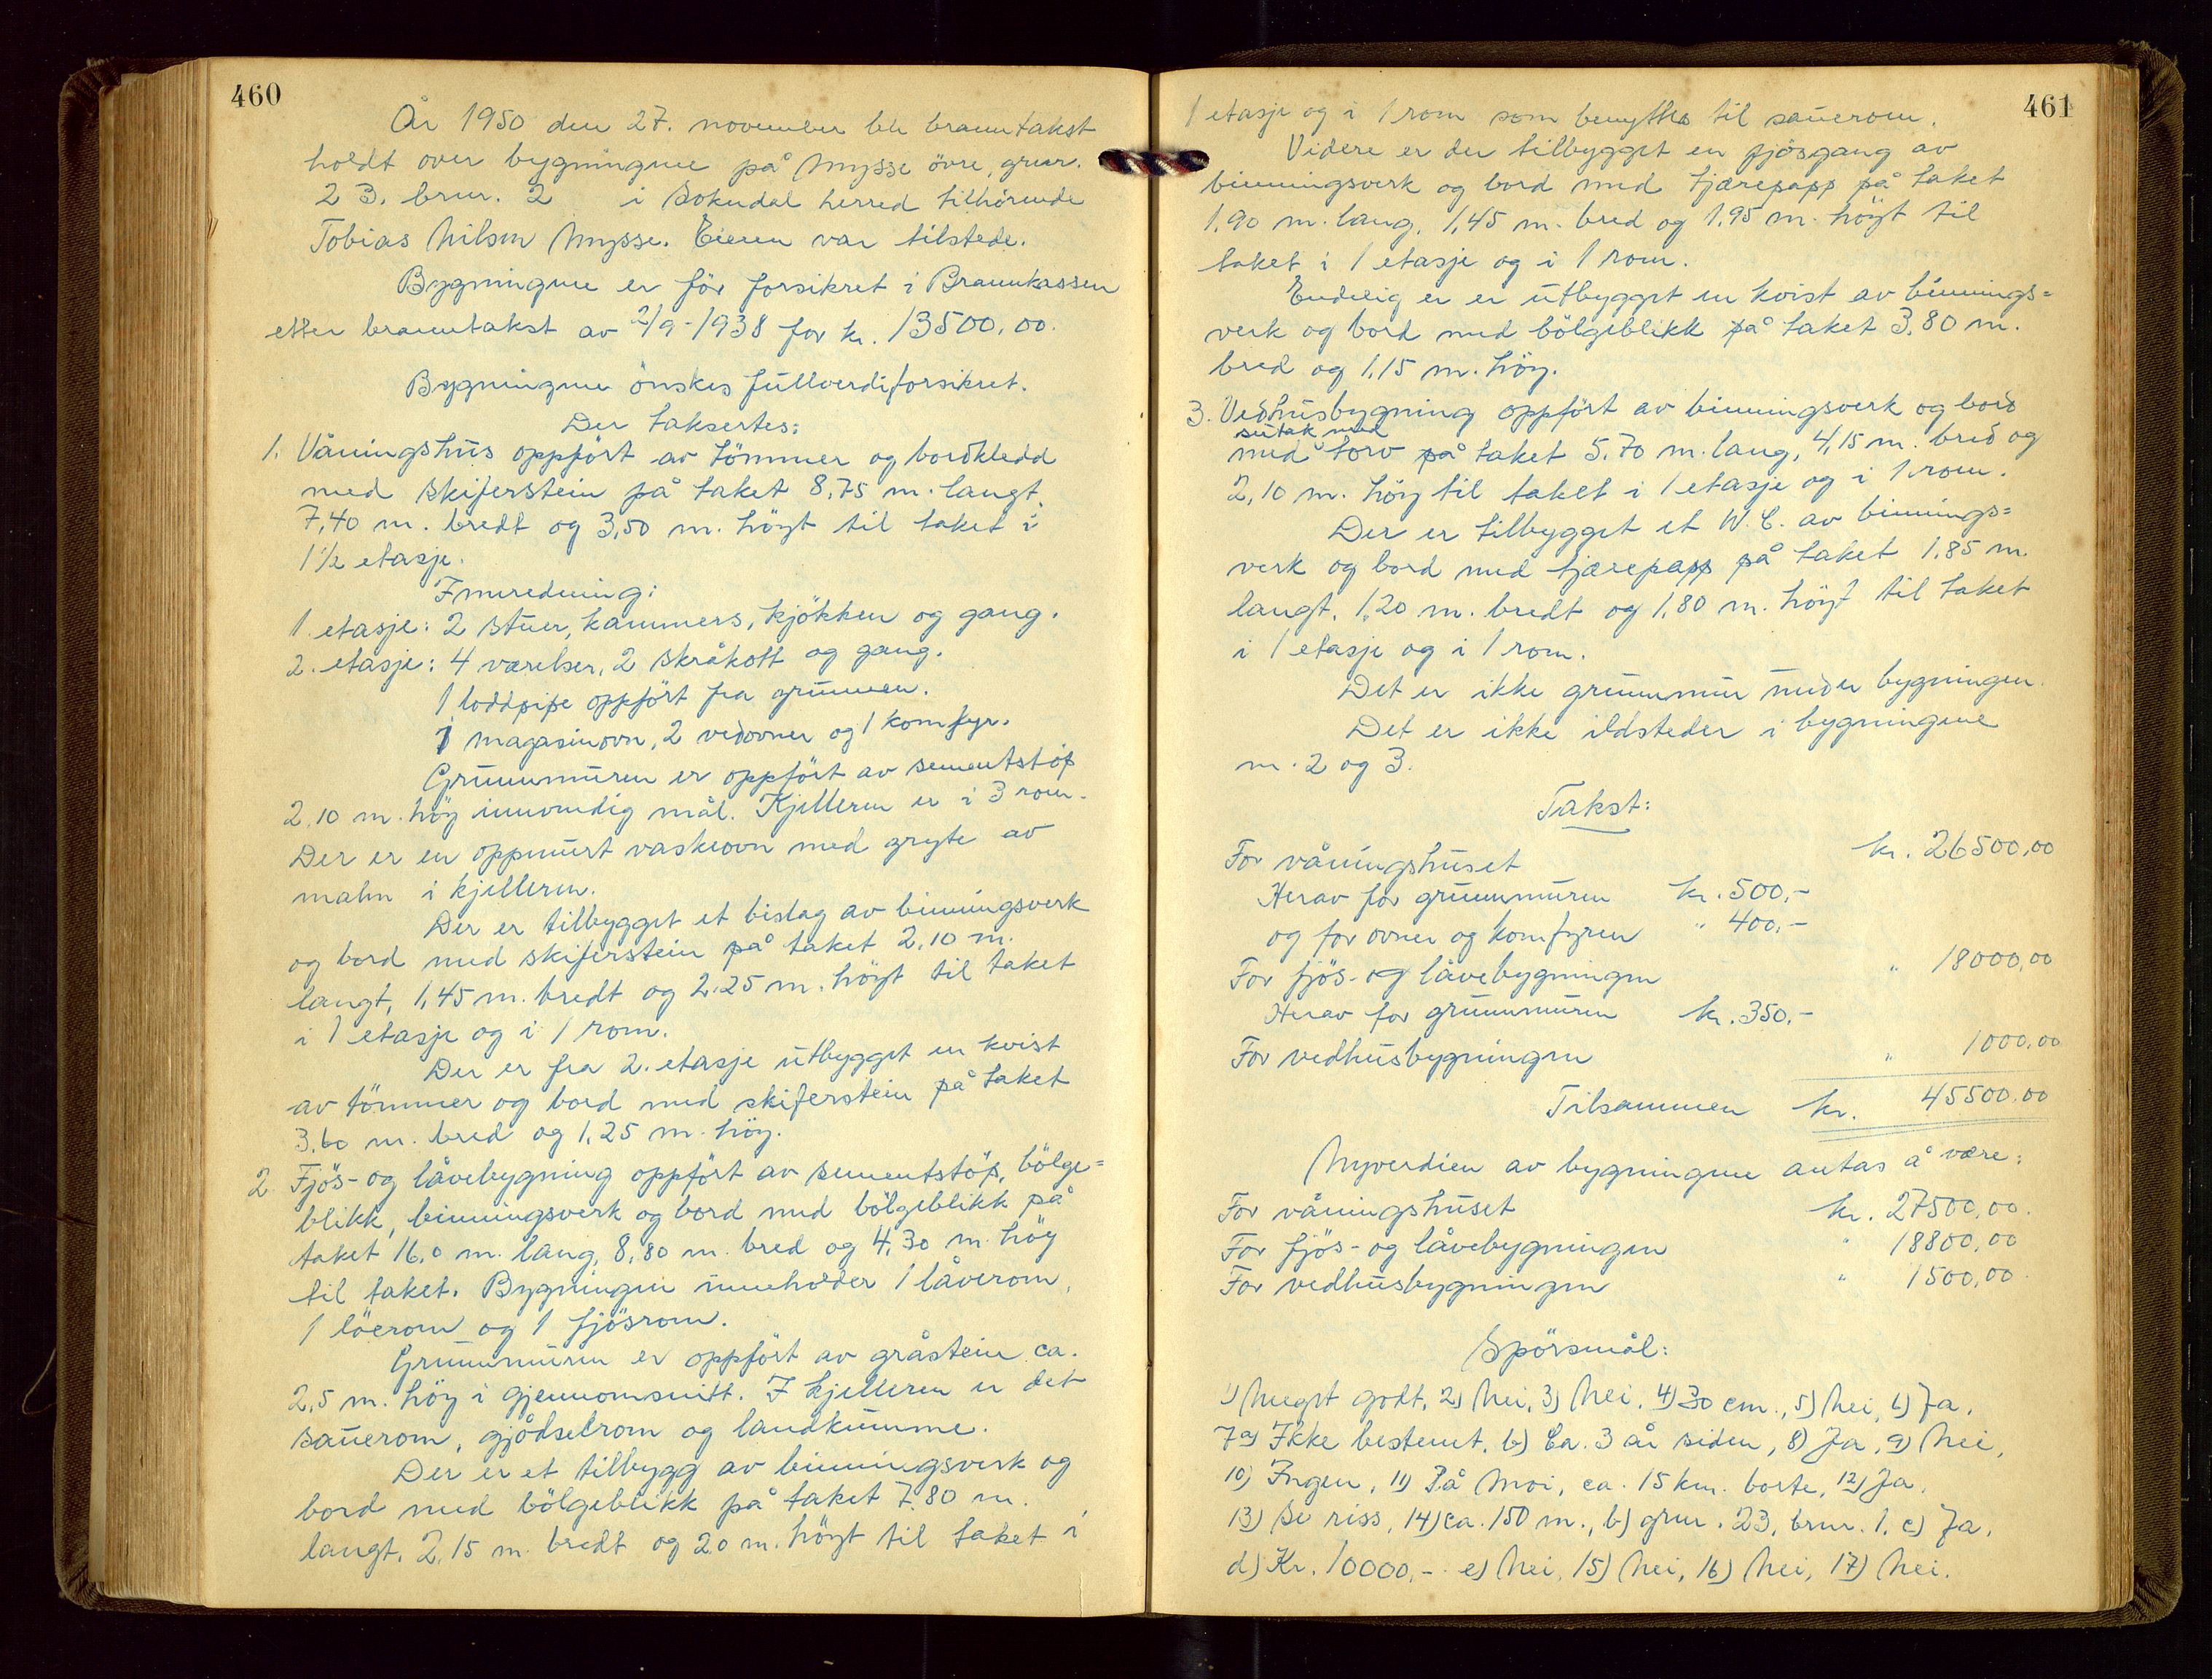 460
År 1950 den 27. november ble branntakst
holdt over bygningene på Mysse övre, gnr.
23. bnr. 2 i Sokndal herred tilhörende
Tobias Nilsen Mysse. Eieren var tilstede.
Bygningene er för forsikret i Brannkassen
etter branntakst av 2/9-1938 for kr. 13500,00.
Bygningene önskes fullverdiforsikret.
Der taksertes:
1. Våningshus oppfört av tömmer og bordkledd
med skiferstein på taket 8,75 m. langt,
7,40 m. bredt og 3,50 m. höyt til taket i
1 1/2 etasje.
Innredning:
1. etasje: 2 stuer, kammers, kjökken og gang.
2. etasje: 4 værelser, 2 skråkott og gang.
1 loddpipe oppfört fra grunnen.
1 magasinovn, 2 vedovner og 1 komfyr.
Grunnmuren er oppfört av sementstöp
2,10 m. höy innvendig mål. Kjelleren er i 3 rom.
Der er en oppmurt vaskeovn med gryte av
malm i kjelleren.
Der er tilbygget et bislag av binningsverk
og bord med skiferstein på taket 2,10 m.
langt, 1,45 m. bredt og 2,25 m. höyt til taket
i 1 etasje og i 1 rom.
Der er fra 2. etasje utbygget en kvist
av tömmer og bord med skiferstein på taket
3,60 m. bred og 1,25 m. höy.
2. Fjös- og låvebygning oppfört av sementstöp, bölge=
blikk, binningsverk og bord med bölgeblikk på
taket 16,0 m. lang, 8,80 m. bred og 4,30 m. höy
til taket. Bygningen inneholder 1 låverom,
1 löerom og 1 fjösrom.
Grunnmuren er oppfört av gråstein ca.
2,5 m. höy i gjennomsnitt. I kjelleren er det
sauerom, gjödselrom og landkumme.
Der er et tilbygg av binningsverk og
bord med bölgeblikk på taket 7,80 m.
langt, 2,15 m. bredt og 2,0 m. höyt til taket i
461
1 etasje og i 1 rom som benyttes til sauerom.
Videre er der tilbygget en fjösgang av
binningsverk og bord med tjærepapp på taket
1,90 m. lang, 1,45 m. bred og 1,95 m. höyt til
taket i 1 etasje og i 1 rom.
Endelig er er utbygget en kvist av binnings=
verk og bord med bölgeblikk på taket 3,80 m.
bred og 1,15 m. höy.
3. Vedhusbygning oppfört av binningsverk og bord
sutak med
med torv på taket 5,70 m. lang, 4,15 m. bred og
2,10 m. höy til taket i 1 etasje og i 1 rom.
Der er tilbygget et W.C. av binnings=
verk og bord med tjærepapp på taket 1,85 m.
langt, 1,20 m. bredt og 1,80 m. höyt til taket
i 1 etasje og i 1 rom.
Det er ikke grunnmur under bygningen.
Det er ikke ildsteder i bygningene
nr. 2 og 3.
Takst:
For våningshuset kr. 26500,00
Herav for grunnmuren kr. 500,-
og for ovner og komfyren " 400,-
For fjös- og låvebygningen " 18000,00
Herav for grunnmuren kr. 350,-
For vedhusbygningen " 1000,00
Tilsammen kr. 45500,00
Nyverdien av bygningene antas å være:
For våningshuset kr. 27500,00.
For fjös- og låvebygningen " 18800,00
For vedhusbygningen " 1500,00.
Spörsmål:
1) Meget godt, 2) Nei, 3) Nei, 4) 30 cm., 5) Nei, 6) Ja,
7a) Ikke bestemt, b) Ca. 3 år siden, 8) Ja, 9) Nei,
10) Ingen, 11) På Moi, ca. 15 km. borte, 12) Ja,
13) Se riss, 14) ca. 150 m., b) gnr. 23, bnr. 1, c) Ja,
d) Kr. 10000,- e) Nei, 15) Nei, 16) Nei, 17) Nei.